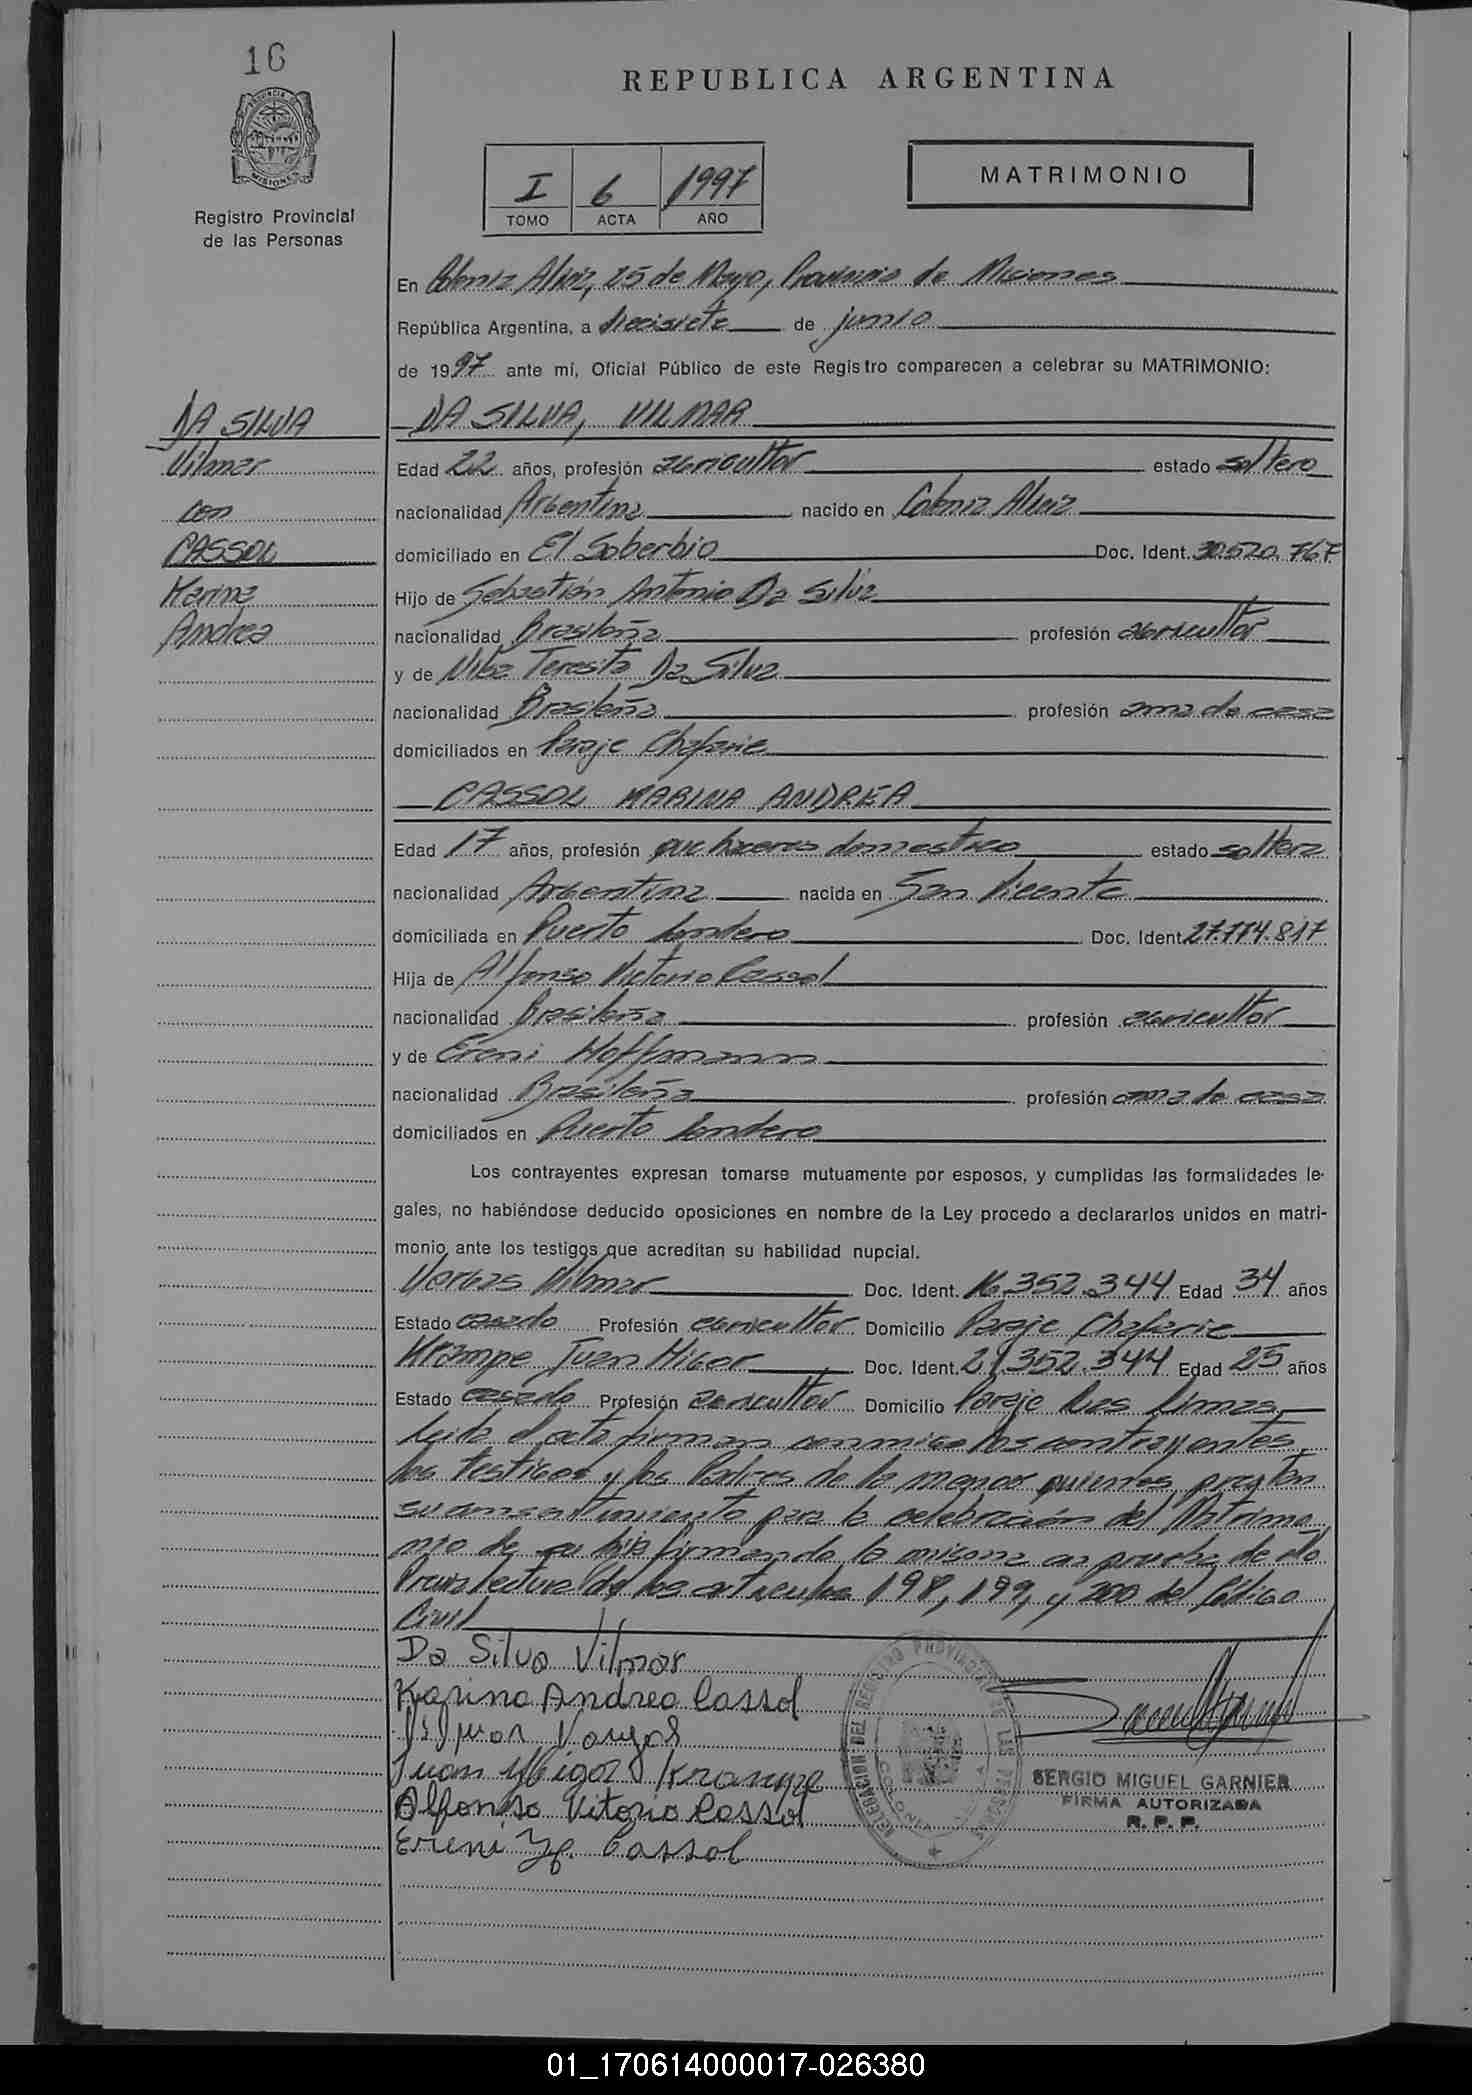 16
REPUBLICA ARGENTINA
PROVINCIA DE MISIONES
Registro Provincial
de las Personas
I 6 1997
TOMO ACTA AÑO
MATRIMONIO
En Colonia Alicia, 25 de Mayo, Provincia de Misiones
República Argentina, a diecisiete de junio
de 1997 ante mí, Oficial Público de este Registro comparecen a celebrar su MATRIMONIO:
DA SILVA
Vilmar
con
CASSOL
Karina
Andrea
DA SILVA, VILMAR
Edad 22 años, profesión agricultor estado soltero
nacionalidad Argentina nacido en Colonia Alicia
domiciliado en El Soberbio Doc. Ident. 30.520.767
Hijo de Sebastián Antonio Da Silva
nacionalidad Brasileña profesión agricultor
y de Teresita Da Silva
nacionalidad Brasileña profesión ama de casa
domiciliados en Paraje Chafariz
CASSOL KARINA ANDREA
Edad 17 años, profesión quehaceres domestico estado soltera
nacionalidad Argentina nacida en San Vicente
domiciliada en Puerto Londero Doc. Ident. 27.774.817
Hija de Alfonso Victorio Cassol
nacionalidad Brasileña profesión agricultor
y de Ereni Hoffmann
nacionalidad Brasileña profesión ama de casa
domiciliados en Puerto Londero
Los contrayentes expresan tomarse mutuamente por esposos, y cumplidas las formalidades le-
gales, no habiéndose deducido oposiciones en nombre de la Ley procedo a declararlos unidos en matri-
monio ante los testigos que acreditan su habilidad nupcial.
Vargas Vilmar Doc. Ident. 16.352.344 Edad 34 años
Estado casado Profesión agricultor Domicilio Paraje Chafariz
Krampe Juan Higor Doc. Ident. 21.352.344 Edad 25 años
Estado casado Profesión agricultor Domicilio Paraje Las Limas
Leida el acta firman conmigo los contrayentes,
los testigos y los Padres de la menor quienes prestan
su consentimiento para la celebración del Matrimo
nio de su hija firmando la misma en prueba de ello
Previa lectura de los articulos 198, 199, y 200 del Código
Civil
Da Silva Vilmar
Karina Andrea Cassol
Vilmar Vargas
Juan Higor Krampe
Alfonso Vitorio Cassol
Ereni H. Cassol
DELEGACION DEL REGISTRO PROVINCIAL DE LAS PERSONAS
COLONIA ALICIA
SERGIO MIGUEL GARNIER
FIRMA AUTORIZADA
R. P. P.
01_170614000017-026380